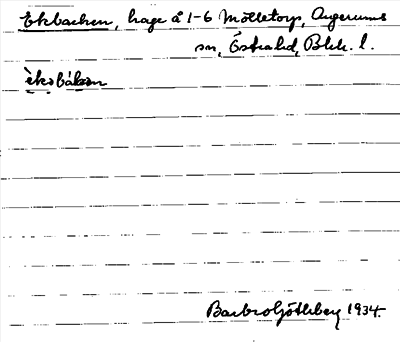 Ekbacken, hage å 1-6 Mölletorp, Augerums
sn, Östra hd, Blek. l.
èkabákan
Barbro Göthberg 1934.